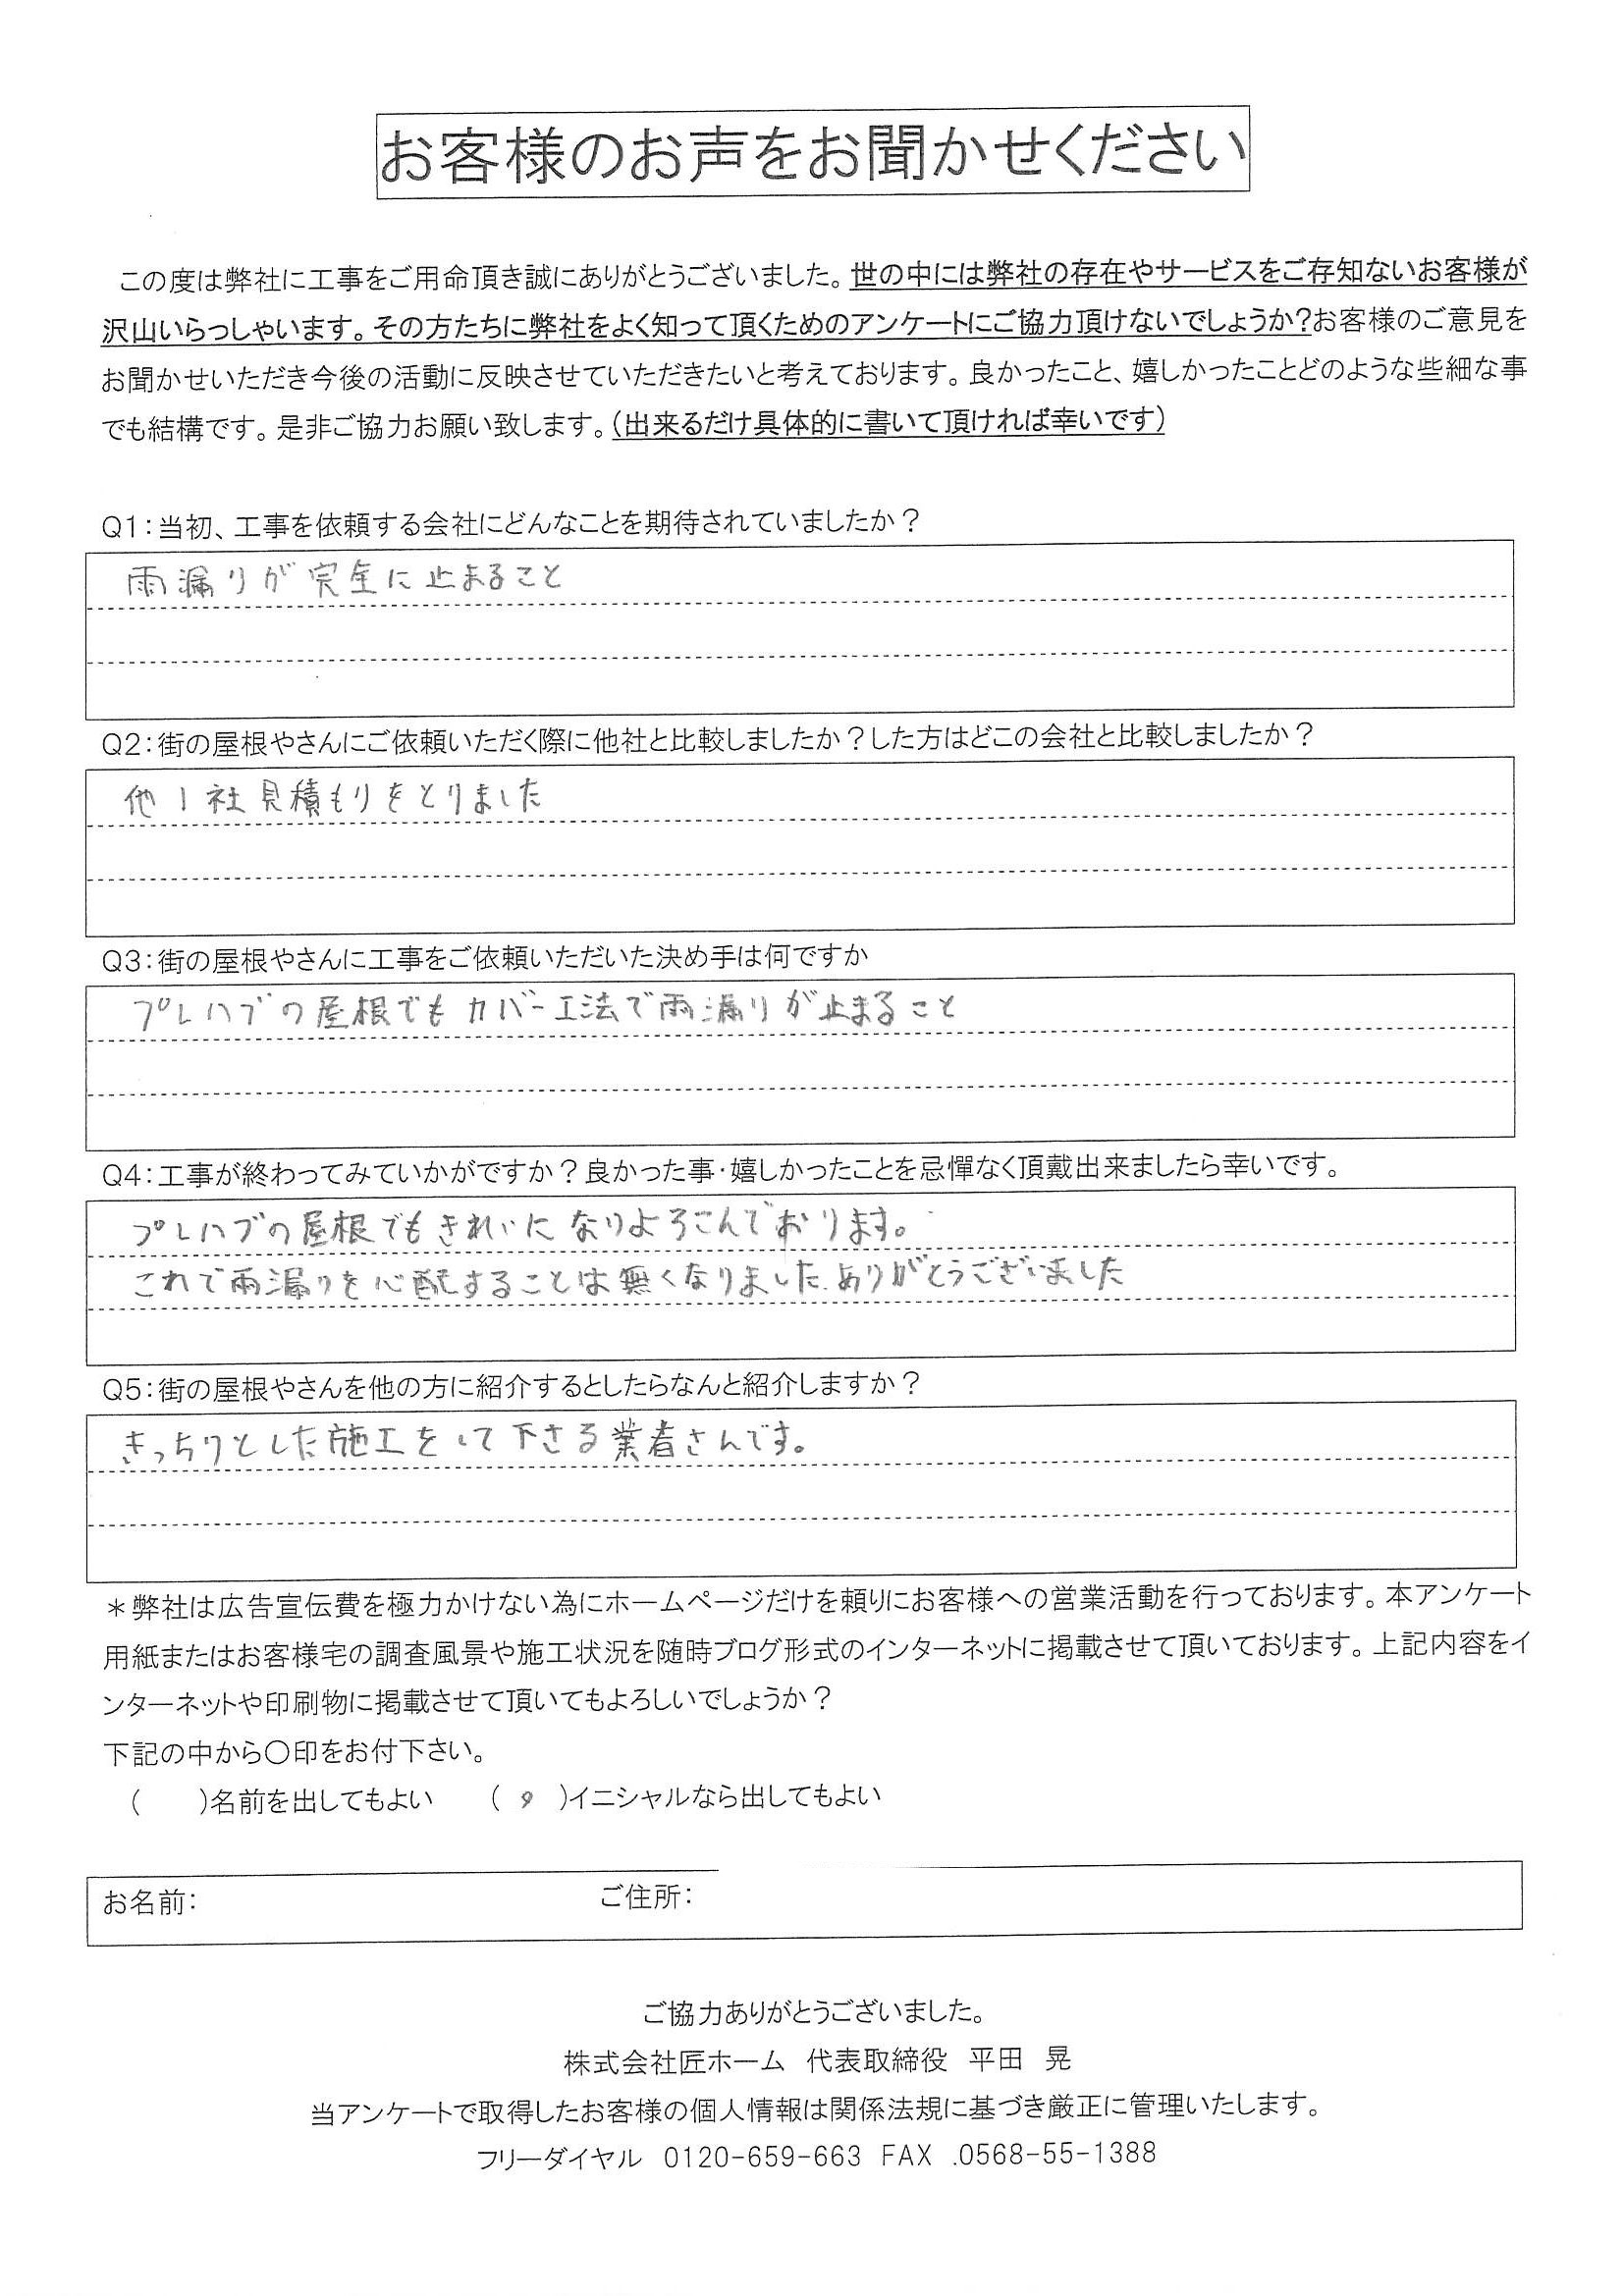 お客様のお声をお聞かせください
この度は弊社に工事をご用命頂き誠にありがとうございました。世の中には弊社の存在やサービスをご存知ないお客様が
沢山いらっしゃいます。その方たちに弊社をよく知って頂くためのアンケートにご協力頂けないでしょうか?お客様のご意見を
お聞かせいただき今後の活動に反映させていただきたいと考えております。良かったこと、嬉しかったことどのような些細な事
でも結構です。是非ご協力お願い致します。(出来るだけ具体的に書いて頂ければ幸いです)
Q1:当初、工事を依頼する会社にどんなことを期待されていましたか?
雨漏りが完全に止まること
Q2:街の屋根やさんにご依頼いただく際に他社と比較しましたか?した方はどこの会社と比較しましたか?
他1社見積もりをとりました
Q3:街の屋根やさんに工事をご依頼いただいた決め手は何ですか
プレハブの屋根でもカバー工法で雨漏りが止まること
Q4:工事が終わってみていかがですか?良かった事・嬉しかったことを忌憚なく頂戴出来ましたら幸いです。
プレハブの屋根でもきれいになりよろこんでおります。
これで雨漏りを心配することは無くなりました.ありがとうございました
Q5:街の屋根やさんを他の方に紹介するとしたらなんと紹介しますか?
きっちりとした施工をして下さる業者さんです。
*弊社は広告宣伝費を極力かけない為にホームページだけを頼りにお客様への営業活動を行っております。本アンケート
用紙またはお客様宅の調査風景や施工状況を随時ブログ形式のインターネットに掲載させて頂いております。上記内容をイ
ンターネットや印刷物に掲載させて頂いてもよろしいでしょうか?
下記の中から〇印をお付下さい。
(　　)名前を出してもよい　　(　○　)イニシャルなら出してもよい
お名前:　　ご住所:
ご協力ありがとうございました。
株式会社匠ホーム　代表取締役　平田　晃
当アンケートで取得したお客様の個人情報は関係法規に基づき厳正に管理いたします。
フリーダイヤル　0120-659-663　FAX　.0568-55-1388